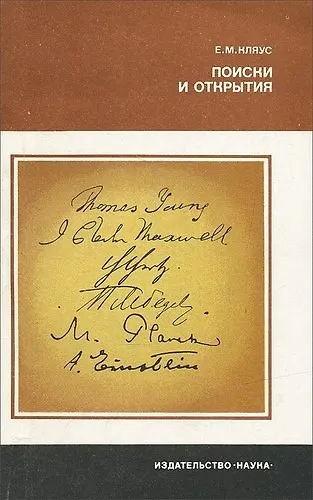 Е.М.КЛЯУС
ПОИСКИ
И ОТКРЫТИЯ
Thomas Young
J Clerk Maxwell
HHertz.
П Лебедев
M. Planck
A. Einstein
ИЗДАТЕЛЬСТВО «НАУКА»